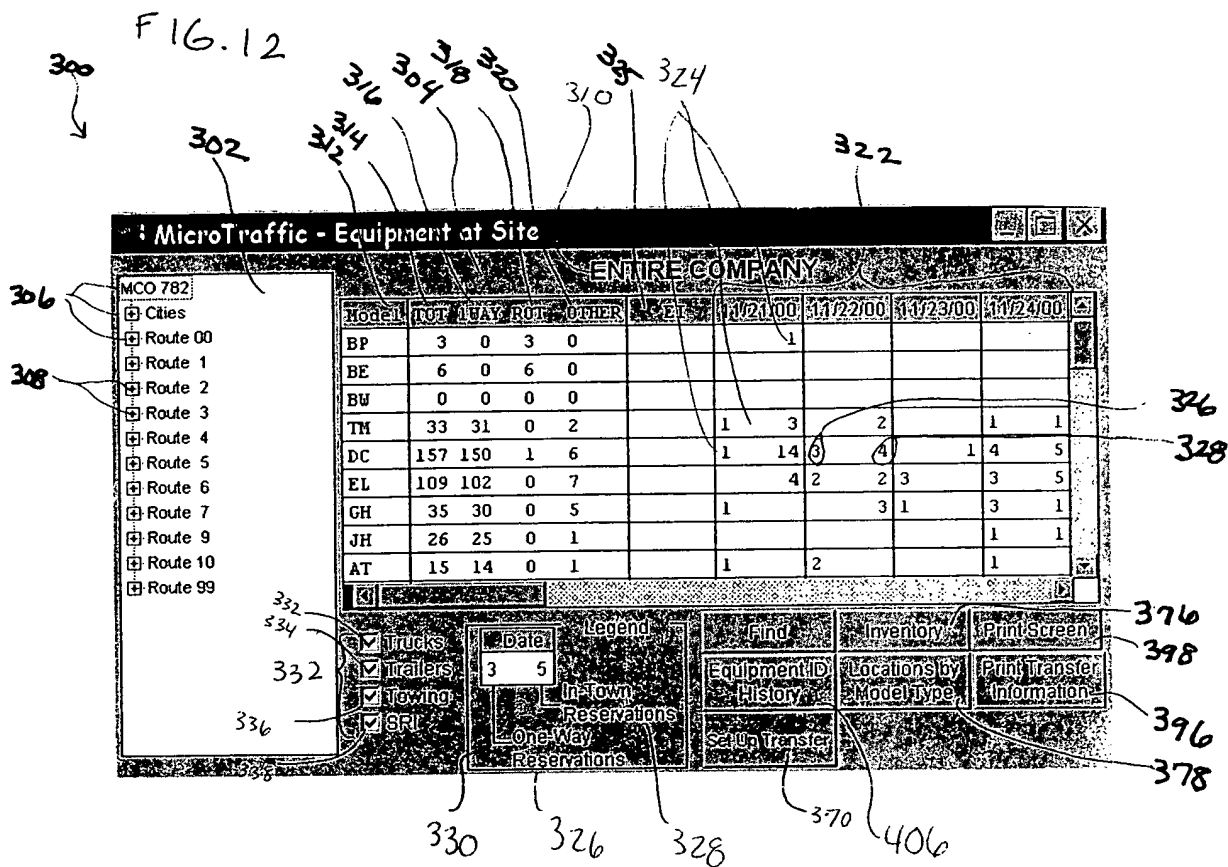 FIG.12
300
302
312
314
316
304
318
320
310
325
324
322
MicroTraffic - Equipment at Site
ENTIRE COMPANY
MCO 782
Cities
Route 00
Route 1
Route 2
Route 3
Route 4
Route 5
Route 6
Route 7
Route 9
Route 10
Route 99
306
308
Model TOT 1WAY ROT OTHER ET 11/21/00 11/22/00 11/23/00 11/24/00
BP 3 0 3 0 1
BE 6 0 6 0
BW 0 0 0 0
TM 33 31 0 2 1 3 2 1 1
DC 157 150 1 6 1 14 3 4 1 4 5
EL 109 102 0 7 4 2 2 3 3 5
GH 35 30 0 5 1 3 1 3 1
JH 26 25 0 1 1 1
AT 15 14 0 1 1 2 1
326
328
332
334
332
336
338
Trucks
Trailers
Towing
SRI
Date
Legend
3 5
In-Town
Reservations
One-Way
Reservations
Find
Inventory
Print Screen
Equipment ID
History
Locations by
Model Type
Print Transfer
Information
Set Up Transfer
376
398
396
378
330
326
328
370
406